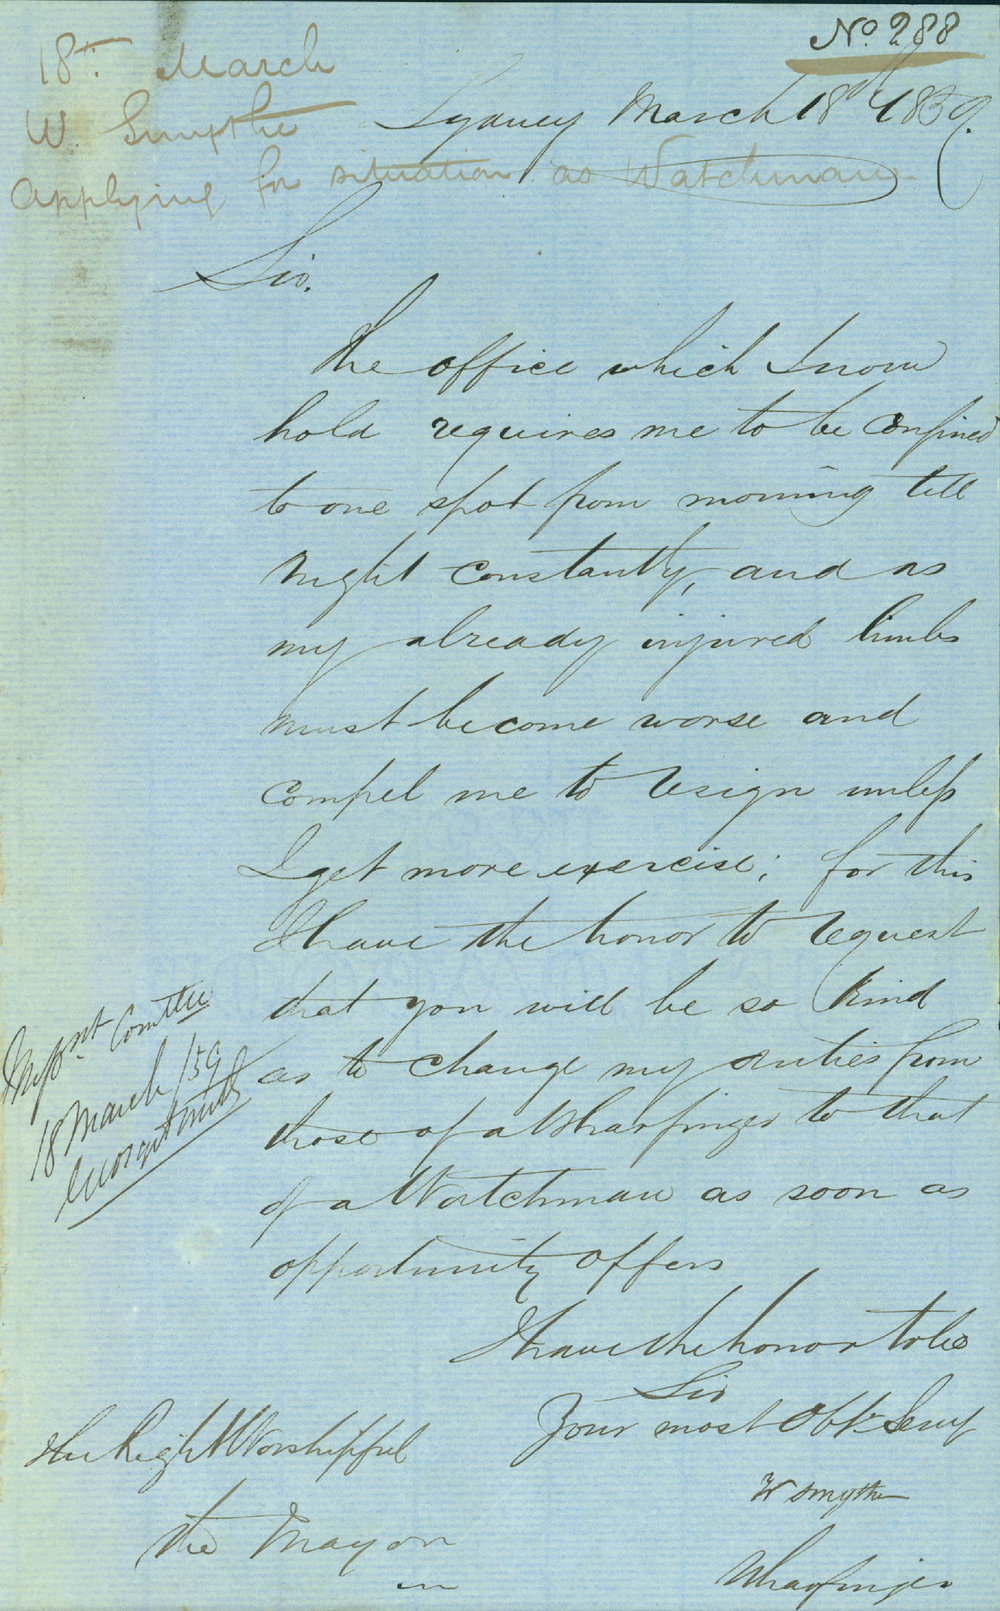 No. 288
18th. March
W. Smythe
Applying for situation as Watchman.
Sydney March 18th 1859.
Sir.
The office which I now
hold requires me to be confined
to one spot from morning till
night constantly, and as
my already injured limbs
must become worse and
compel me to resign unless
I get more exercise; for this
I have the honor to request
that you will be so kind
as to change my duties from
those of a Wharfinger to that
of a Watchman as soon as
opportunity offers
I have the honor to be
Sir
Your most Obt. Servt
W Smythe
Wharfinger
The Right Worshipful
the Mayor
Impvt. Comttee
18 March /59
George Smith